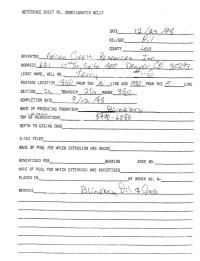 REFERENCE SHEET RE. UNDESIGNATED WELLS
DATE 12/23/98
OIL/GAS Oil
COUNTY Lea
OPERATOR Falcon Creek Resources Inc
ADDRESS 621 17th St, Suite 1800 Denver, CO 80293
LEASE NAME, WELL NO. Terry #1-6
FOOTAGE LOCATION FROM THE N LINE AND FROM THE LINE
SECTION TOWNSHIP 21s RANGE 38e
COMPLETION DATE 9/12/98
NAME OF PRODUCING FORMATION Blinebry
TOP OF PERFORATIONS 5990-6086
DEPTH TO CASING SHOE
C-123 FILED
NAME OF POOL FOR WHICH EXTENSION WAS ASKED
ADVERTISED FOR HEARING CASE NO.
NAME OF POOL FOR WHICH EXTENSION WAS ADVERTISED
PLACED IN BY ORDER NO. R-
REMARKS Blinebry Oil & Gas